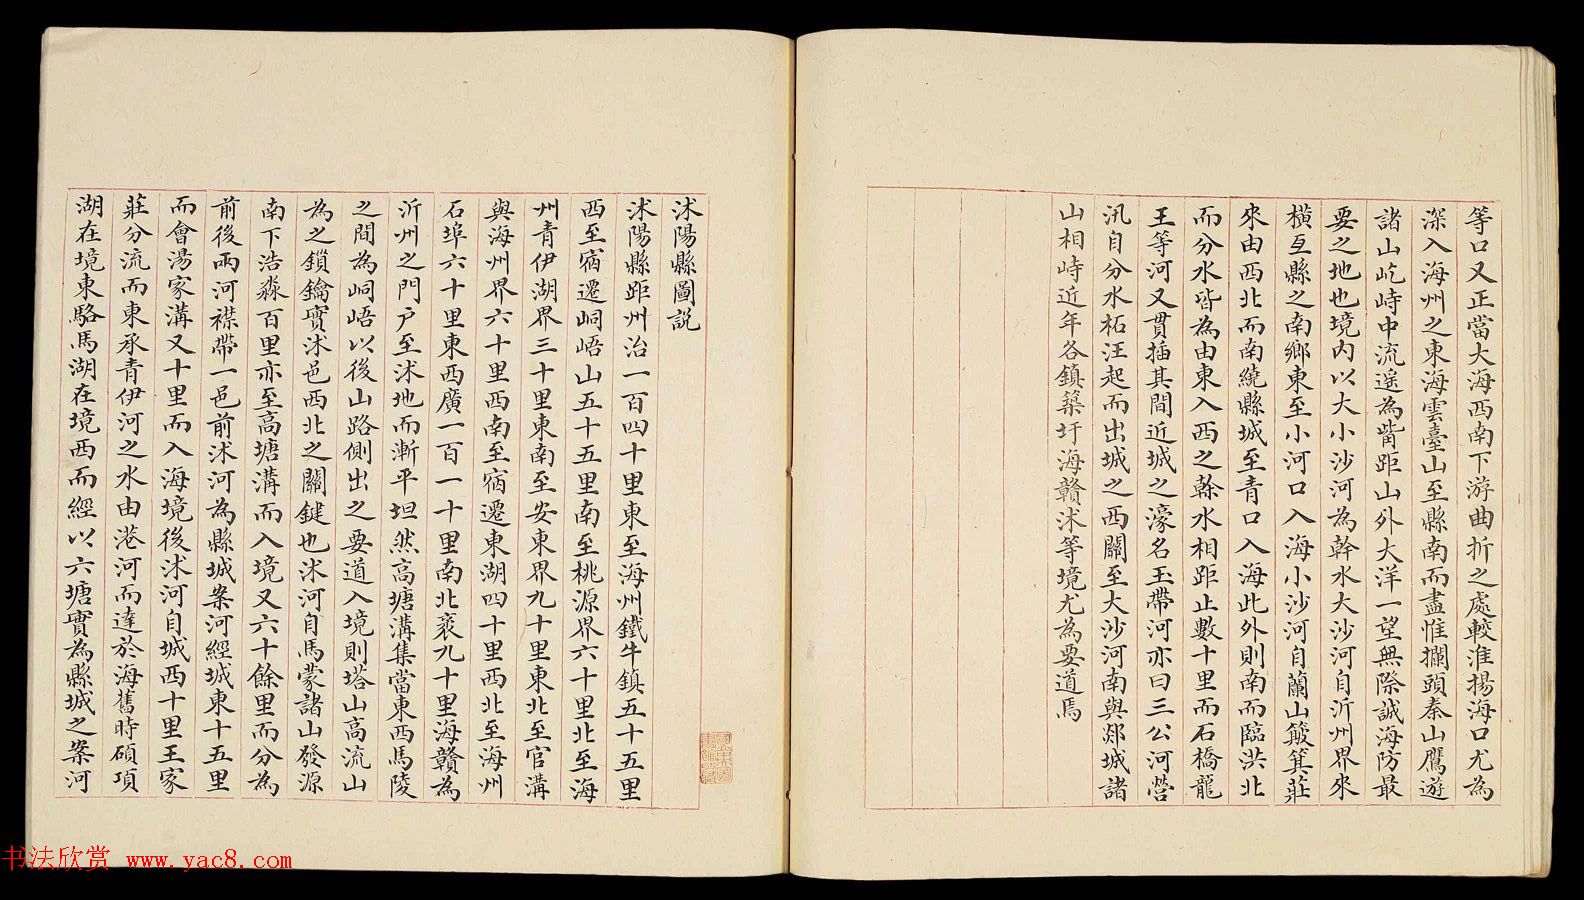 等口又正當大海西南下游曲折之處較淮揚海口尤為
深入海州之東海雲臺山至縣南而盡惟攔頭秦山鷹遊
諸山屹峙中流遥為觜距山外大洋一望無際誠海防最
要之地也境内以大小沙河為幹水大沙河自沂州界來
橫亙縣之南鄉東至小河口入海小沙河自蘭山簸箕莊
來由西北而南繞縣城至青口入海此外則南而臨洪北
而分水皆為由東入西之幹水相距止數十里而石橋龍
王等河又貫插其間近城之濠名玉帶河亦曰三公河營
汛自分水柘汪起而出城之西關至大沙河南與郯城諸
山相峙近年各鎮築圩海贛沭等境尤為要道焉
沭陽縣圖說
沭陽縣距州治一百四十里東至海州鐵牛鎮五十五里
西至宿遷峒峿山五十五里南至桃源界六十里北至海
州青伊湖界三十里東南至安東界九十里東北至官溝
與海州界六十里西南至宿遷東湖四十里西北至海州
石埠六十里東西廣一百一十里南北袤九十里海贛為
沂州之門戶至沭地而漸平坦然高塘溝集當東西馬陵
之間為峒峿以後山路側出之要道入境則塔山高流山
為之鎖鑰實沭邑西北之關鍵也沭河自馬蒙諸山發源
南下浩淼百里亦至高塘溝而入境又六十餘里而分為
前後兩河襟帶一邑前沭河為縣城案河經城東十五里
而會湯家溝又十里而入海境後沭河自城西十里王家
莊分流而東承青伊河之水由港河而達於海舊時碩項
湖在境東駱馬湖在境西而經以六塘實為縣城之案河
书法欣赏 www.yac8.com